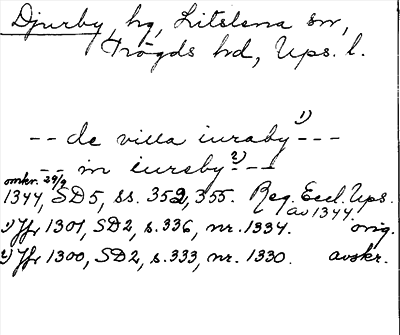 Djurby, hg, Litslena sn,
Trögds hd, Ups. l.
-- de villa iuraby 1) ---
-- in iursby 2) --
omkr. 29/9
1344, SD5, ss. 352, 355. Reg. Eccl. Ups.
av 1344.
1) Jfr 1301, SD2, s. 336, nr. 1334. orig.
2) Jfr 1300, SD2, s. 333, nr. 1330. avskr.